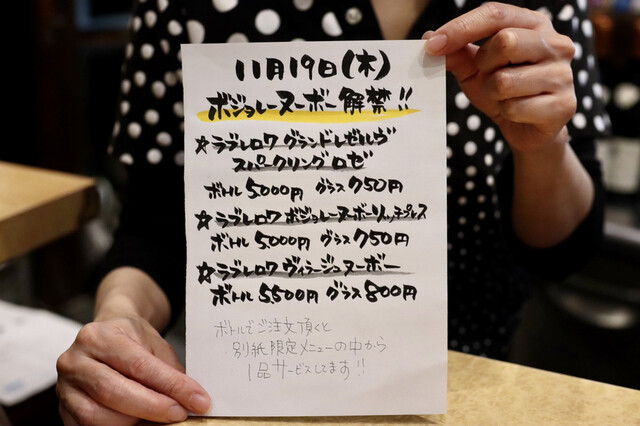 11月19日(木)
ボジョレーヌーボー解禁!!
☆ラブレロワ グランドレゼルヴ
スパークリングロゼ
ボトル 5000円 グラス 750円
☆ラブレロワ ボジョレーヌーボーリッチプレス
ボトル 5000円 グラス 750円
☆ラブレロワ ヴィラージュヌーボー
ボトル 5500円 グラス 800円
ボトルでご注文頂くと
別紙限定メニューの中から
1品サービスしてます!!